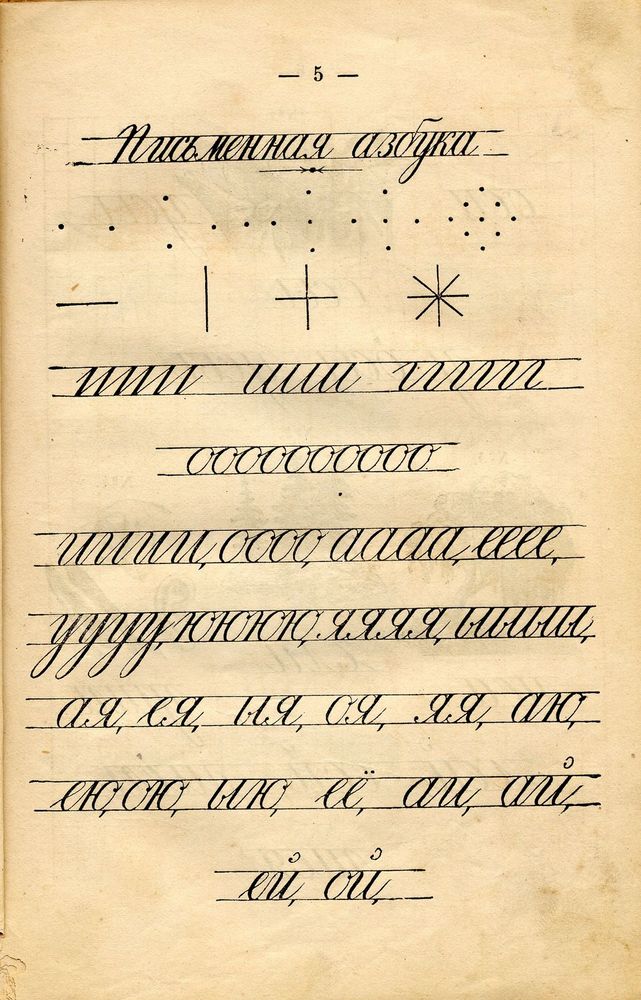 — 5 —
Письменная азбука
оооооооооо
ииии, оооо, аааа, ееее,
уууу, юююю, яяяя, ыыыы,
ая, ея, ыя, оя, яя, аю,
ею, ою, ыю, её, аи, ай,
ей, ой,